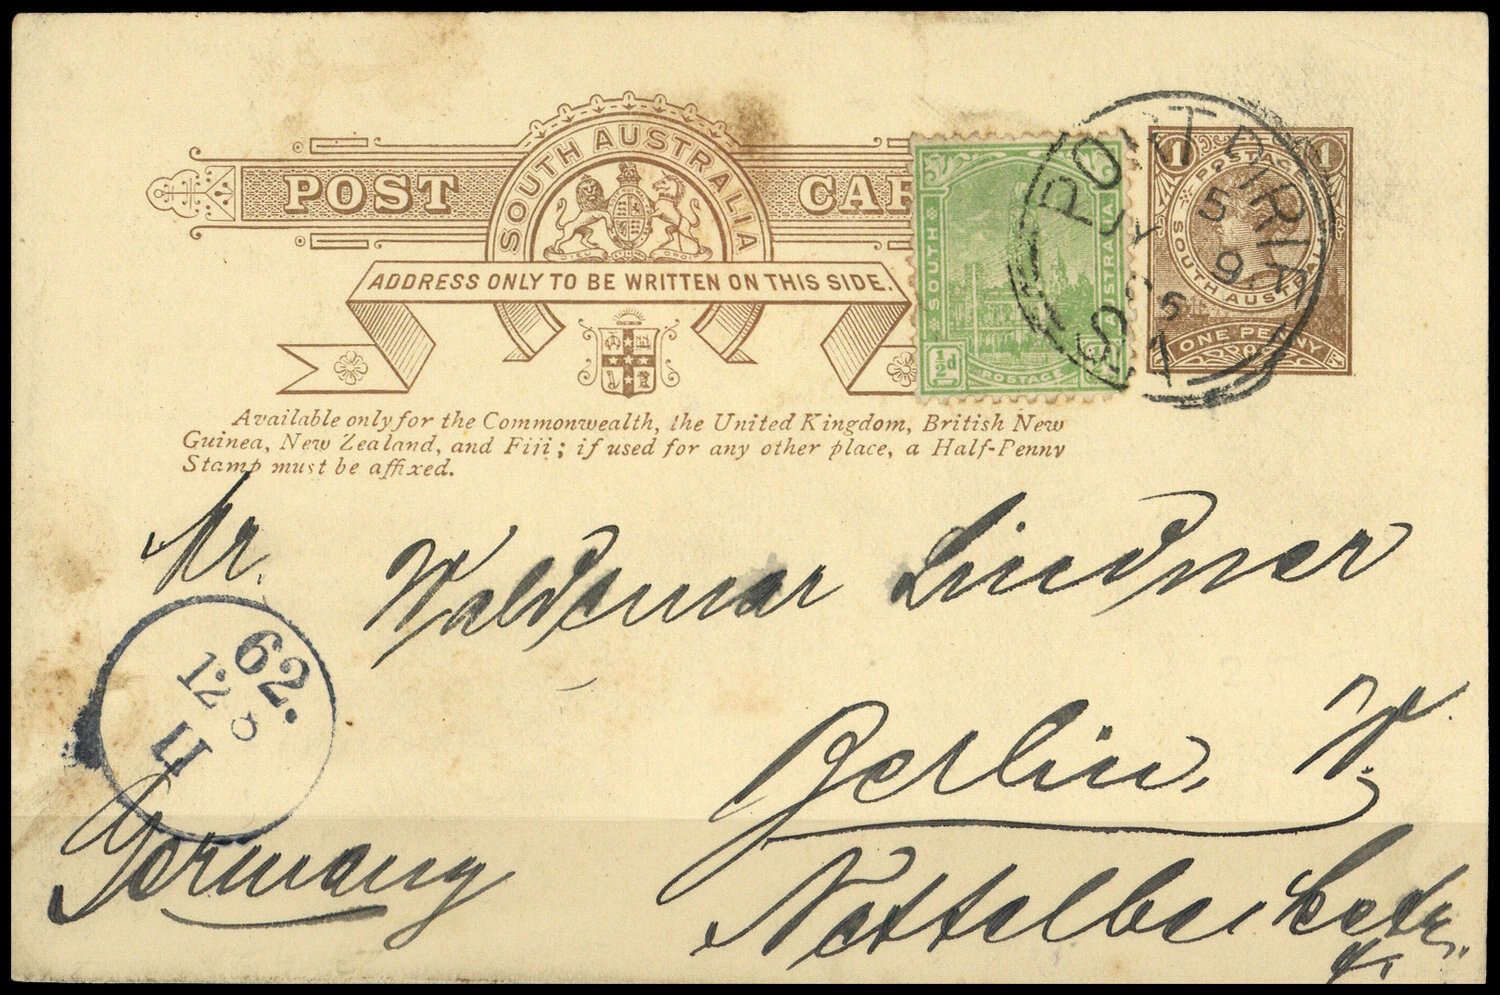 SOUTH AUSTRALIA
POST CAR
DIEU ET MON DROIT
ADDRESS ONLY TO BE WRITTEN ON THIS SIDE.
Available only for the Commonwealth, the United Kingdom, British New
Guinea, New Zealand, and Fiji; if used for any other place, a Half-Penny
Stamp must be affixed.
SOUTH AUSTRALIA
½d
POSTAGE
PORT PIRIE
5
9
1 POSTAGE 1
SOUTH AUSTRALIA
ONE PENNY
Mr. Waldemar Lindner
Berlin, W.
62.
12 8
Germany
Nettelbeckstr.